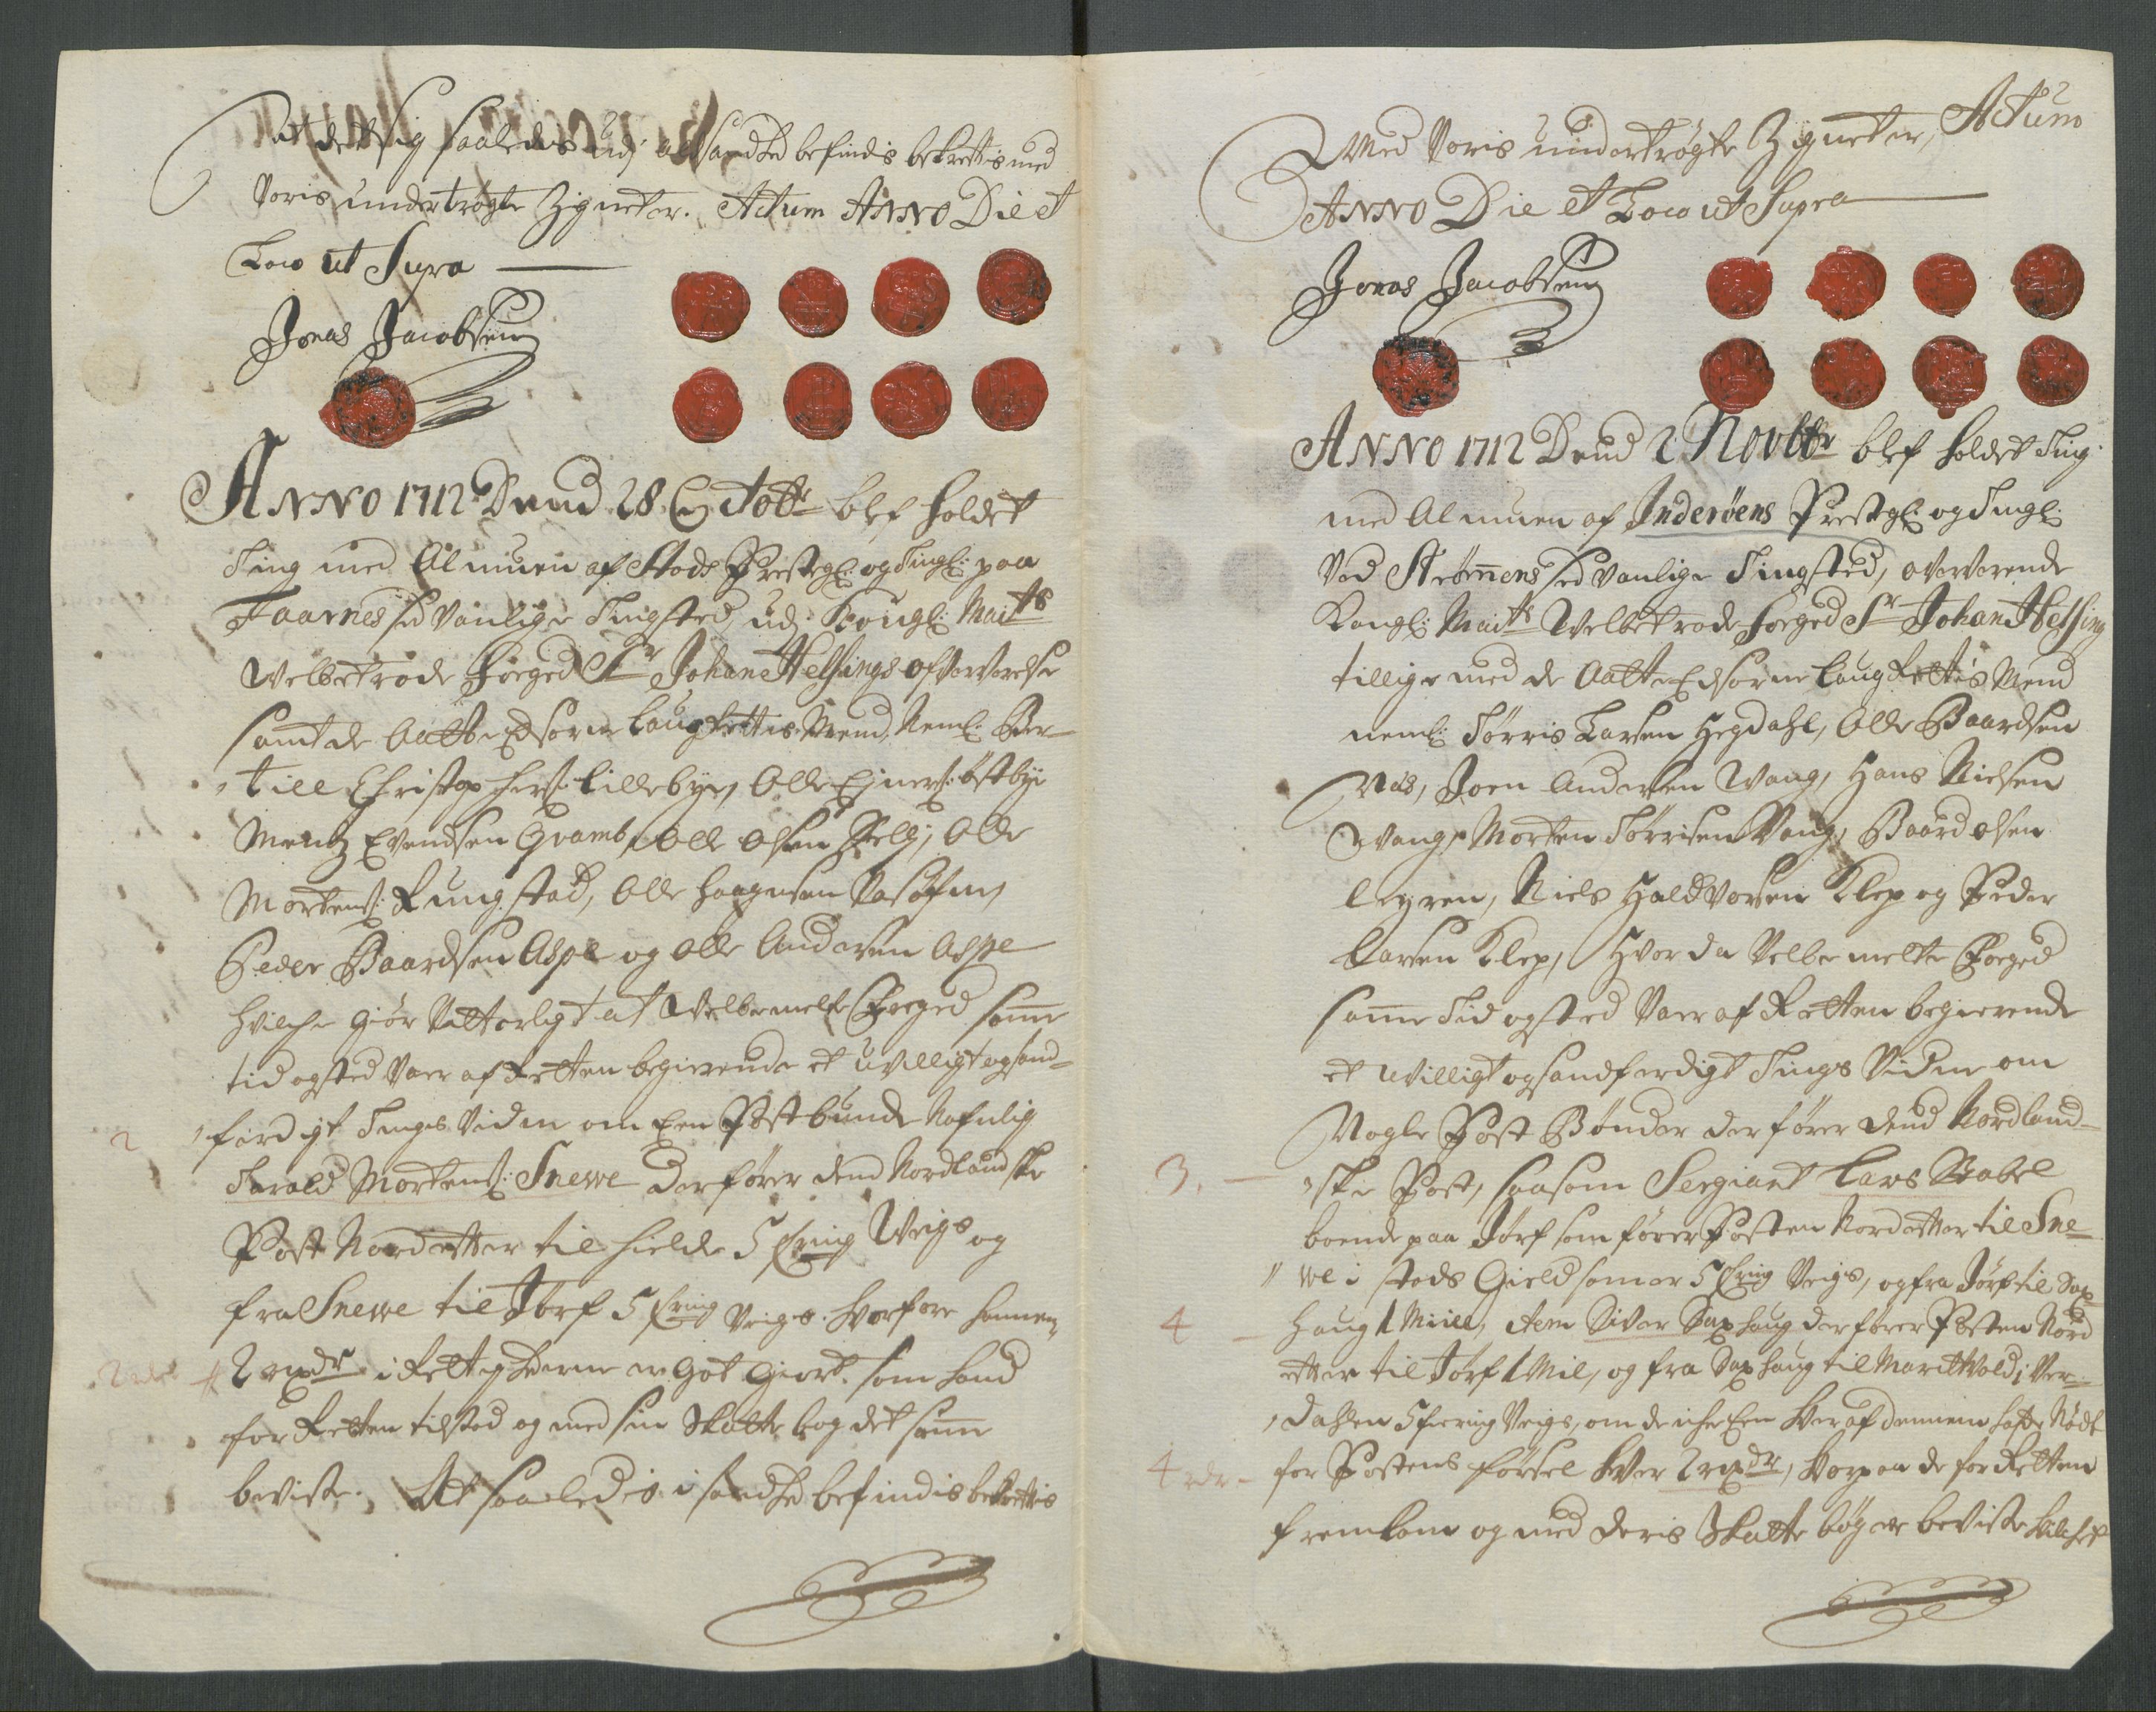 at det sig saaledis udj all Sandhed befindis bekreftis med
Voris undertrögte Zigneter. Actum ANNO Die et
Loco ut Supra
Jonas Jacobsen
ANNO 1712 Dend 28 Octobr blef holdet
Ting med Almuen af Stods Prestegl: og Tingl: paa
Faarnes sed Vanlige Tingsted, udj Kongl: Maits
Welbetrode Foeged Sr Johan Helsings Ofververelse
samt de Aatte Edsorne Laug Rettis Mend, Neml: Ber-
till Christophers: Lillebye, Olle Ejners: Östbye
Mentz Evendsen Qvamb, Olle Olsen Sælj, Olle
Mortens: Rungstad, Olle Haagensen
Peder Baardsen Aspe og Olle Andersen Aspe
Hvilche giör Vitterligt at Welbemelte Foeged samme
tid og sted Vaer af Retten begierende et uvilligt og sand-
færdigt Tings Vidne om Een Postbunde Nafnlig
Tarald Mortens: Snewe der förer dend Nordlandske
Post Nord etter til Hielde 5 fring Veigs og
fra Snewe til Jörf 5 fring Veigs. Hvorfore hannem
2 rixdr i Rettighederne er Got Giort. som hand
for Retten tilstod og med sin Skatte bog det samme
beviste. At saaledis i sandhed befindis bekreftis
2
2 rdr
Med Voris undertrögte Zigneter, Actum
ANNO Die et Loco ut Supra
Jonas Jacobsen
ANNO 1712 Dend 2 Novbr blef holdet Ting
med Almuen af Inderöens Prestegl: og Tingl:
Ved Strömmens sed vanlige Tingsted, oververende
Kongl: Maits Welbetrode Foeged Sr Johan Helsing
tillige med de Aatte Edsorne Laug Rettis Mend
neml: Törris Larsen Hegdahl, Olle Baardsen
Næs, Joen Andersen Wang, Hans Nielsen
Wang, Morten Törrisen Vang, Baard Olsen
Leyren, Niels Haldvorsen Klep og Peder
Larsen Klep, Hvor da Velbemelte Foeged
samme Tid og sted Vaer af Retten begierende
et uvilligt og sandfærdigt Tings Vidne om
Nogle Post Bönder der förer dend Nordland-
ske Post, saasom Sergiant Lars Stabel
boende paa Jörf som förer Posten Nord etter til Sne-
we i Stods Gield som er 5 fring Veigs, og fra Jörf til Sax-
haug 1 Miill, Item Siver Saxhaug der förer Posten Nord
etter til Jörf 1 Mil, og fra Saxhaug til Maritvold i Ver-
dahlen 5 fiering Veigs, om de iche Een hver af dennem hafde Nödt
for Postens försel hver 2 rixdr, hvorpaa de for Retten
fremkom og med deris Skatte böger beviste hvilchet
3.
4
4 rdr